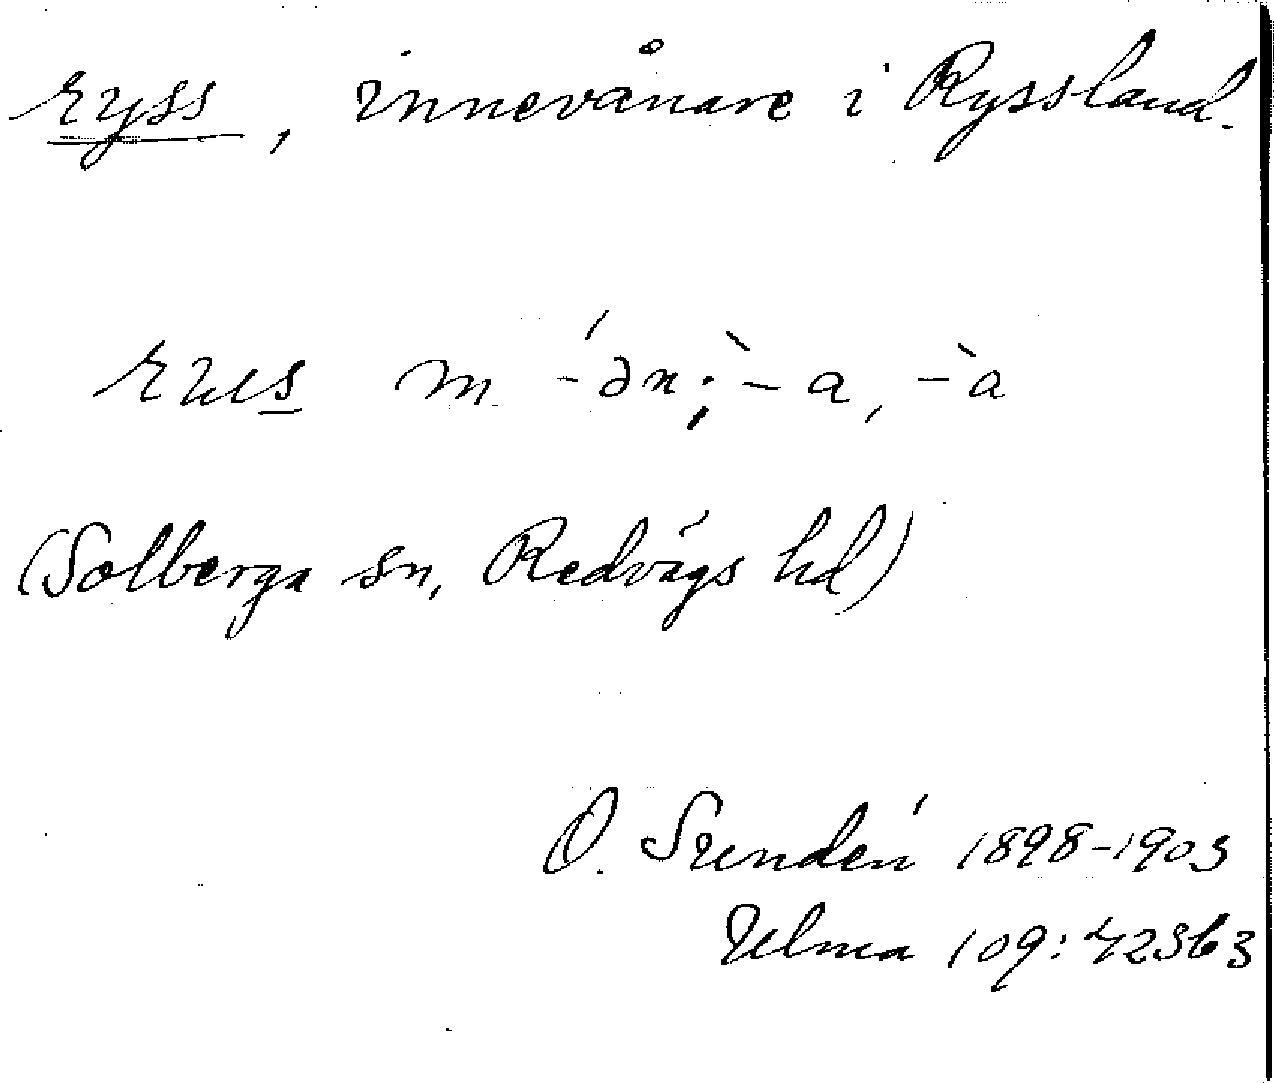 ryss, innevånare i Ryssland.
rus m -´ən; -` a, -` a
(Solberga sn, Redvägs hd)
O. Sundén 1898-1903
Ulma 109: 42363